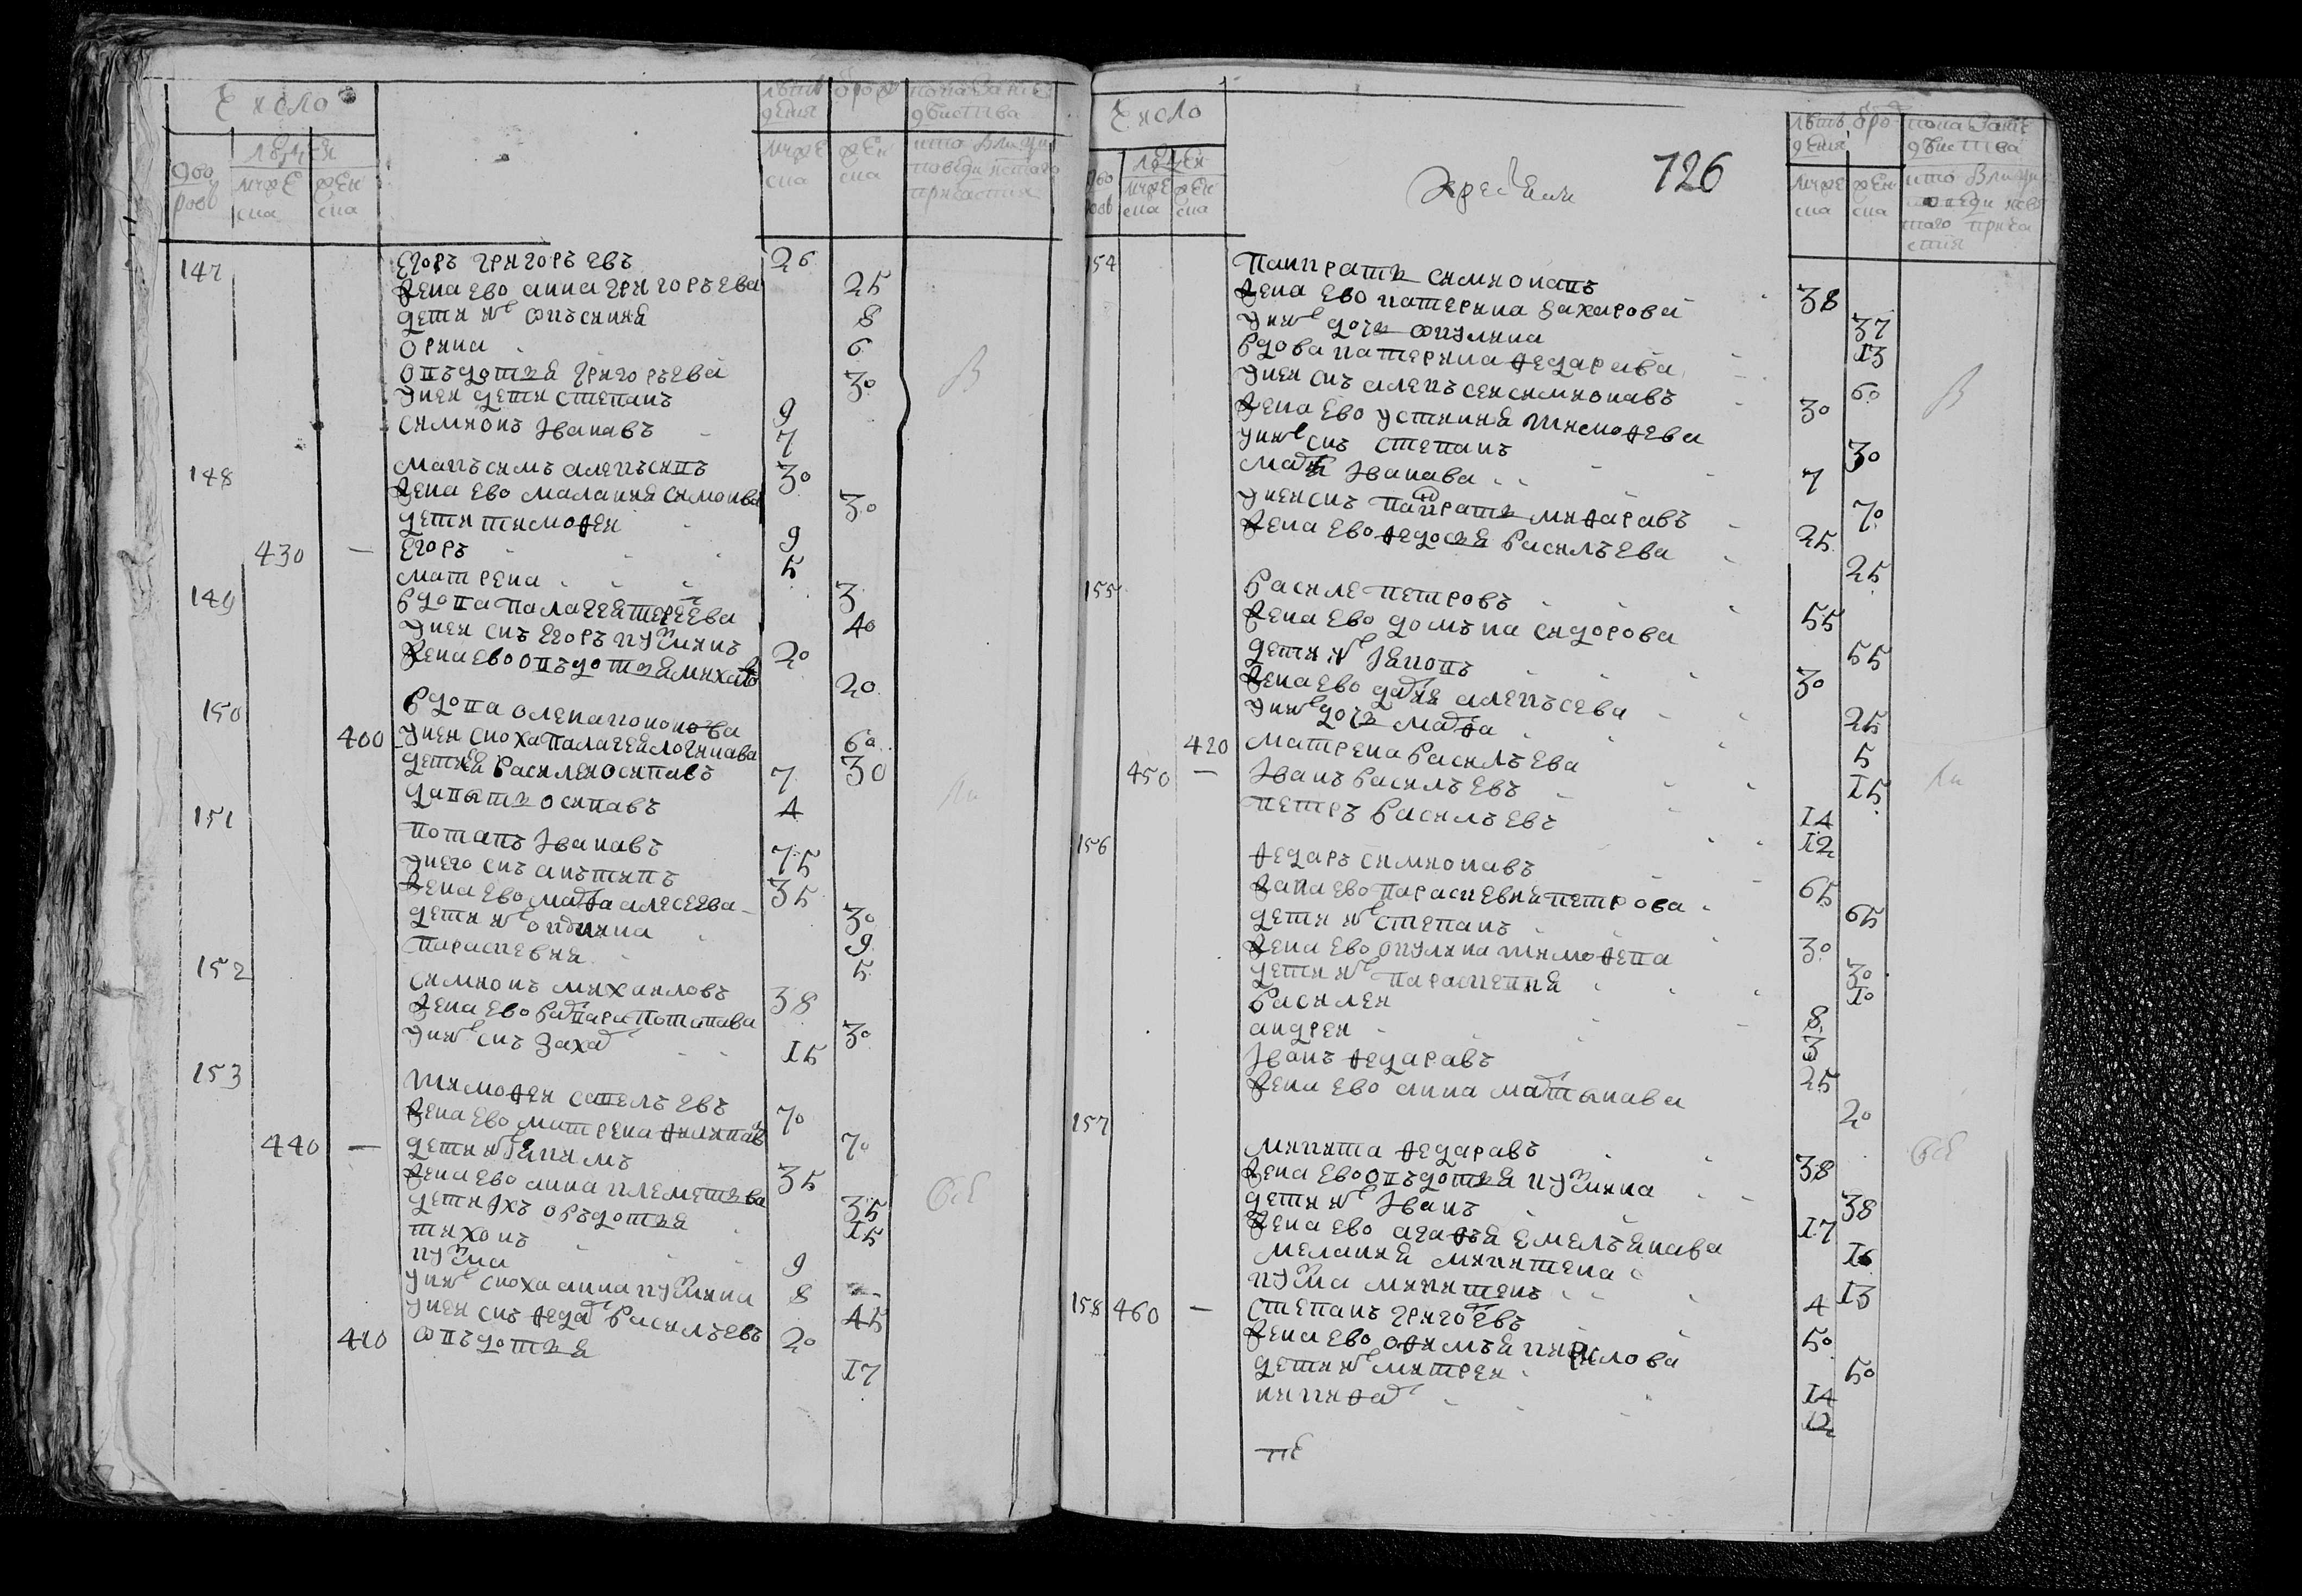 Число
дво
ровъ
людей
мужеска
женска
лѣтъ от рождения
мужеска
женска
показание действа
кто были у исповеди и святого причастия
147
Егоръ Григорьевъ 26
жена ево Анна Григорьева 25
дети их Оксиния 8
Орина 6
Овдотья Григорьева 30
у ней дети Степанъ 9
Симионъ Иванавъ 7
В
148
Максимъ Алексеивъ 30
жена ево Малания Симонва 30
дети Тимофеи 9
430 — Егоръ 5
Матрена 3
149
вдова Палагея Терееева 40
у ней снъ Егоръ Кузминъ 20
жена ево Овдотья Михало 20
150
вдова Олена 60
400 у ней сноха Палагея Логинава 30
дети Василеи Осипавъ 7
Давыть Осипавъ 4
ли
151
Потапъ Иванавъ 75
у него снъ Антипъ 35
жена ево Марфа Алесеева 30
дети их 9
Параскевия 5
152
Симионъ Михаиловъ 38
жена ево Варвара Потапава 30
у них снъ Захар 15
153
Тимофеи Савельевъ 70
жена ево Матрена Филипав 70
440 — дети их Якимъ 35
жена ево Анна Клеметьва 35
дети ихъ Овдотья 15
Тихонъ 9
Кузма 8
у них сноха Анна Кузмина 45
у неи снъ Федар Васильевъ 20
410 Овдотья 17
все
Число
126
лѣтъ от рождения
мужеска
женска
показание действа
154
Панкрать Симионавъ 38
жена ево Катерина Захарова 37
у них дочь Окулина 13
вдова Катерина Федарава 60
у неи снъ Алексеи Симионавъ 30
жена ево Устиния Тимофева 30
у них снъ Степанъ 7
Марья Иванава 70
у неи снъ Панкрать Макаравъ 25
жена ево Федосья Васильева 25
В
155
Василе Петровъ 55
жена ево Домна Сидорова 55
дети их Яковъ 30
жена ево Дарья Алексева 25
у них дочь Марфа 5
420 Матрена Васильева 15
450 — Иванъ Васильевъ 14
Петръ Васильевъ 12
ли
156
Федаръ Симионавъ 65
жана ево Параскевия Петрова 65
дети их Степанъ 30
жена ево Окулина Тимофева 30
дети их Параскевия 10
Василеи 8
Андреи 3
Иванъ Федаравъ 25
жена ево Анна Мартынава 20
157
Микита Федаравъ 38
жена ево Овдотья Кузмина 38
дети их Иванъ 17
жена ево Агафья Емельянава 16
Мелания Микитева 13
Кузма Микитевъ 4
все
158
460 — Степанъ Григоревъ 50
жена ево Офимья Кирилова 50
дети их Митреи 14
Никифар 12